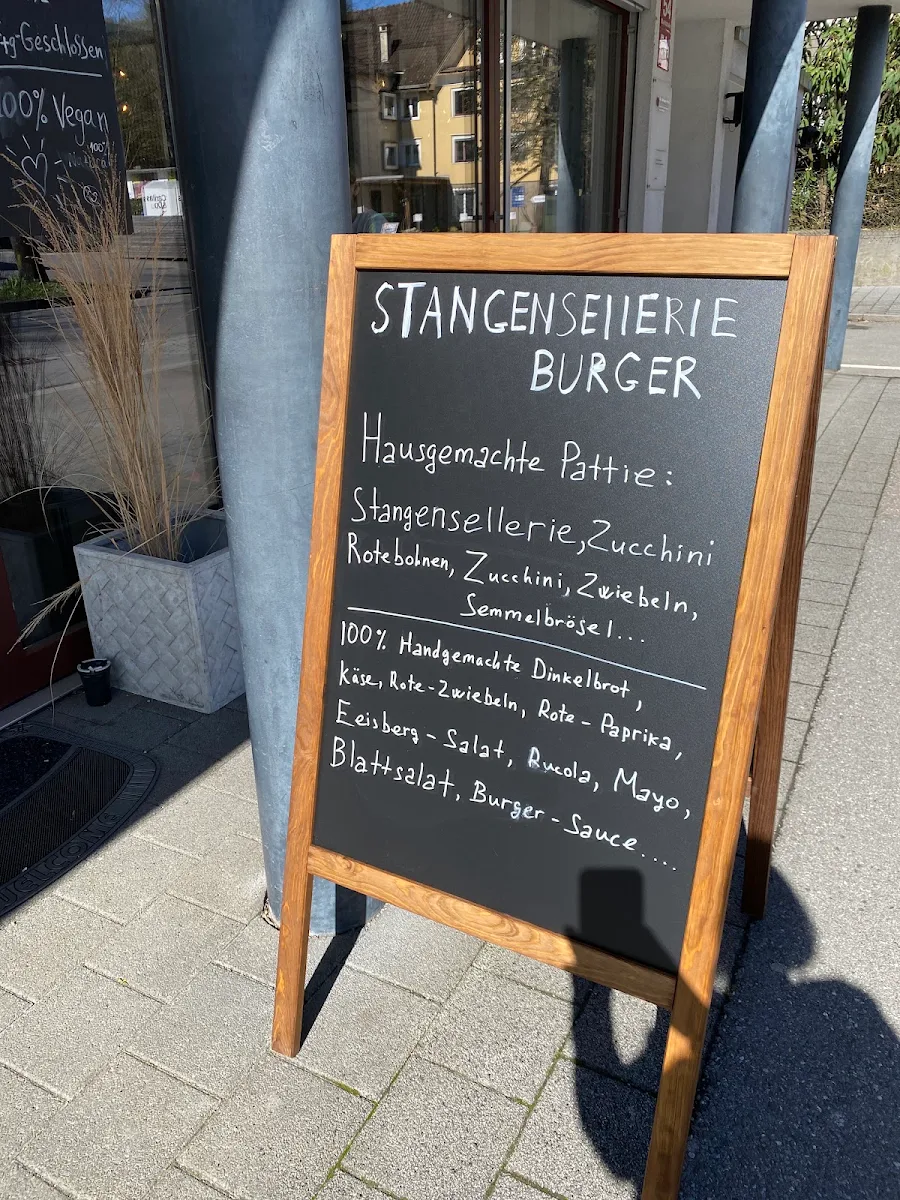 Geschlossen
100% Vegan
100%
STANGENSEllERIE
BURGER
Hausgemachte Pattie:
Stangensellerie, Zucchini
Rotebohnen, Zucchini, Zwiebeln,
Semmelbrösel...
100% Handgemachte Dinkelbrot,
Käse, Rote-Zwiebeln, Rote-Paprika,
Eeisberg-Salat, Rucola, Mayo,
Blattsalat, Burger-Sauce....
WELCOME